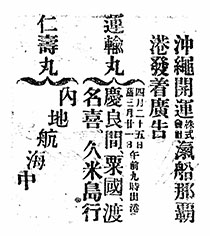 沖繩開運株式會社滊船那覇
港發着廣告
運輸丸
四月二十五日午前九時出港
舊三月廿一日
慶良間、粟國、渡
名喜、久米島行
仁壽丸
內地航海中